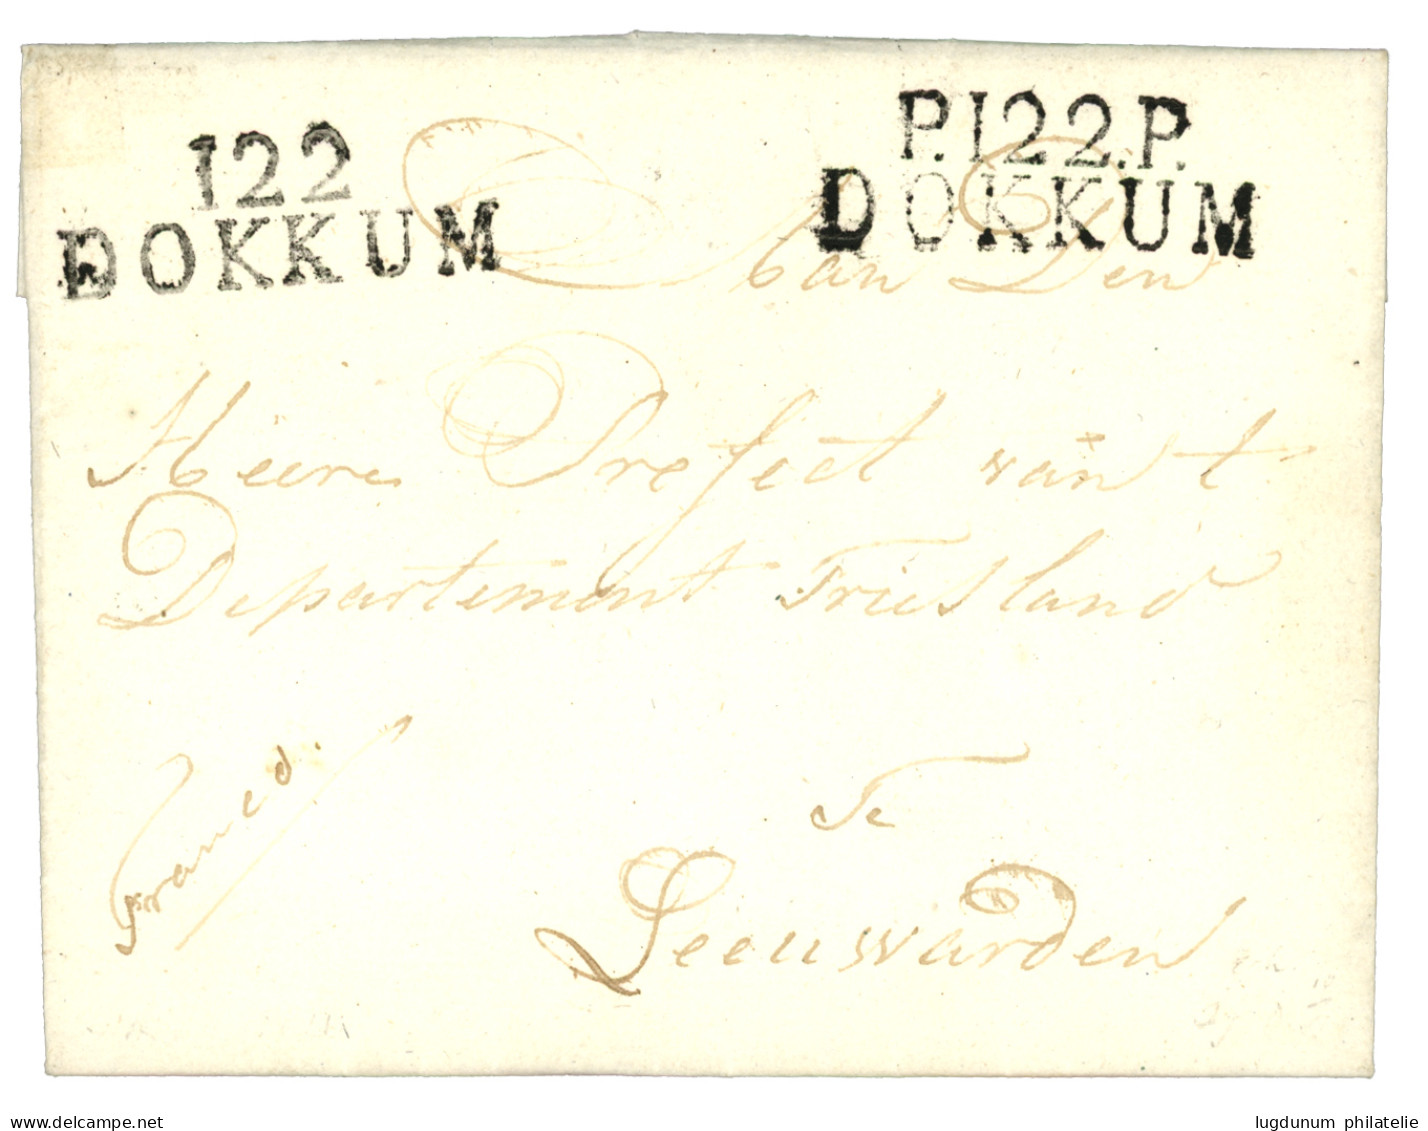 122
DOKKUM
P.122.P.
DOKKUM
Aan Den
Heere Prefect van t
Departement Friesland
franco
Te
Leeuwarden
www.delcampe.net
lugdunum philatelie